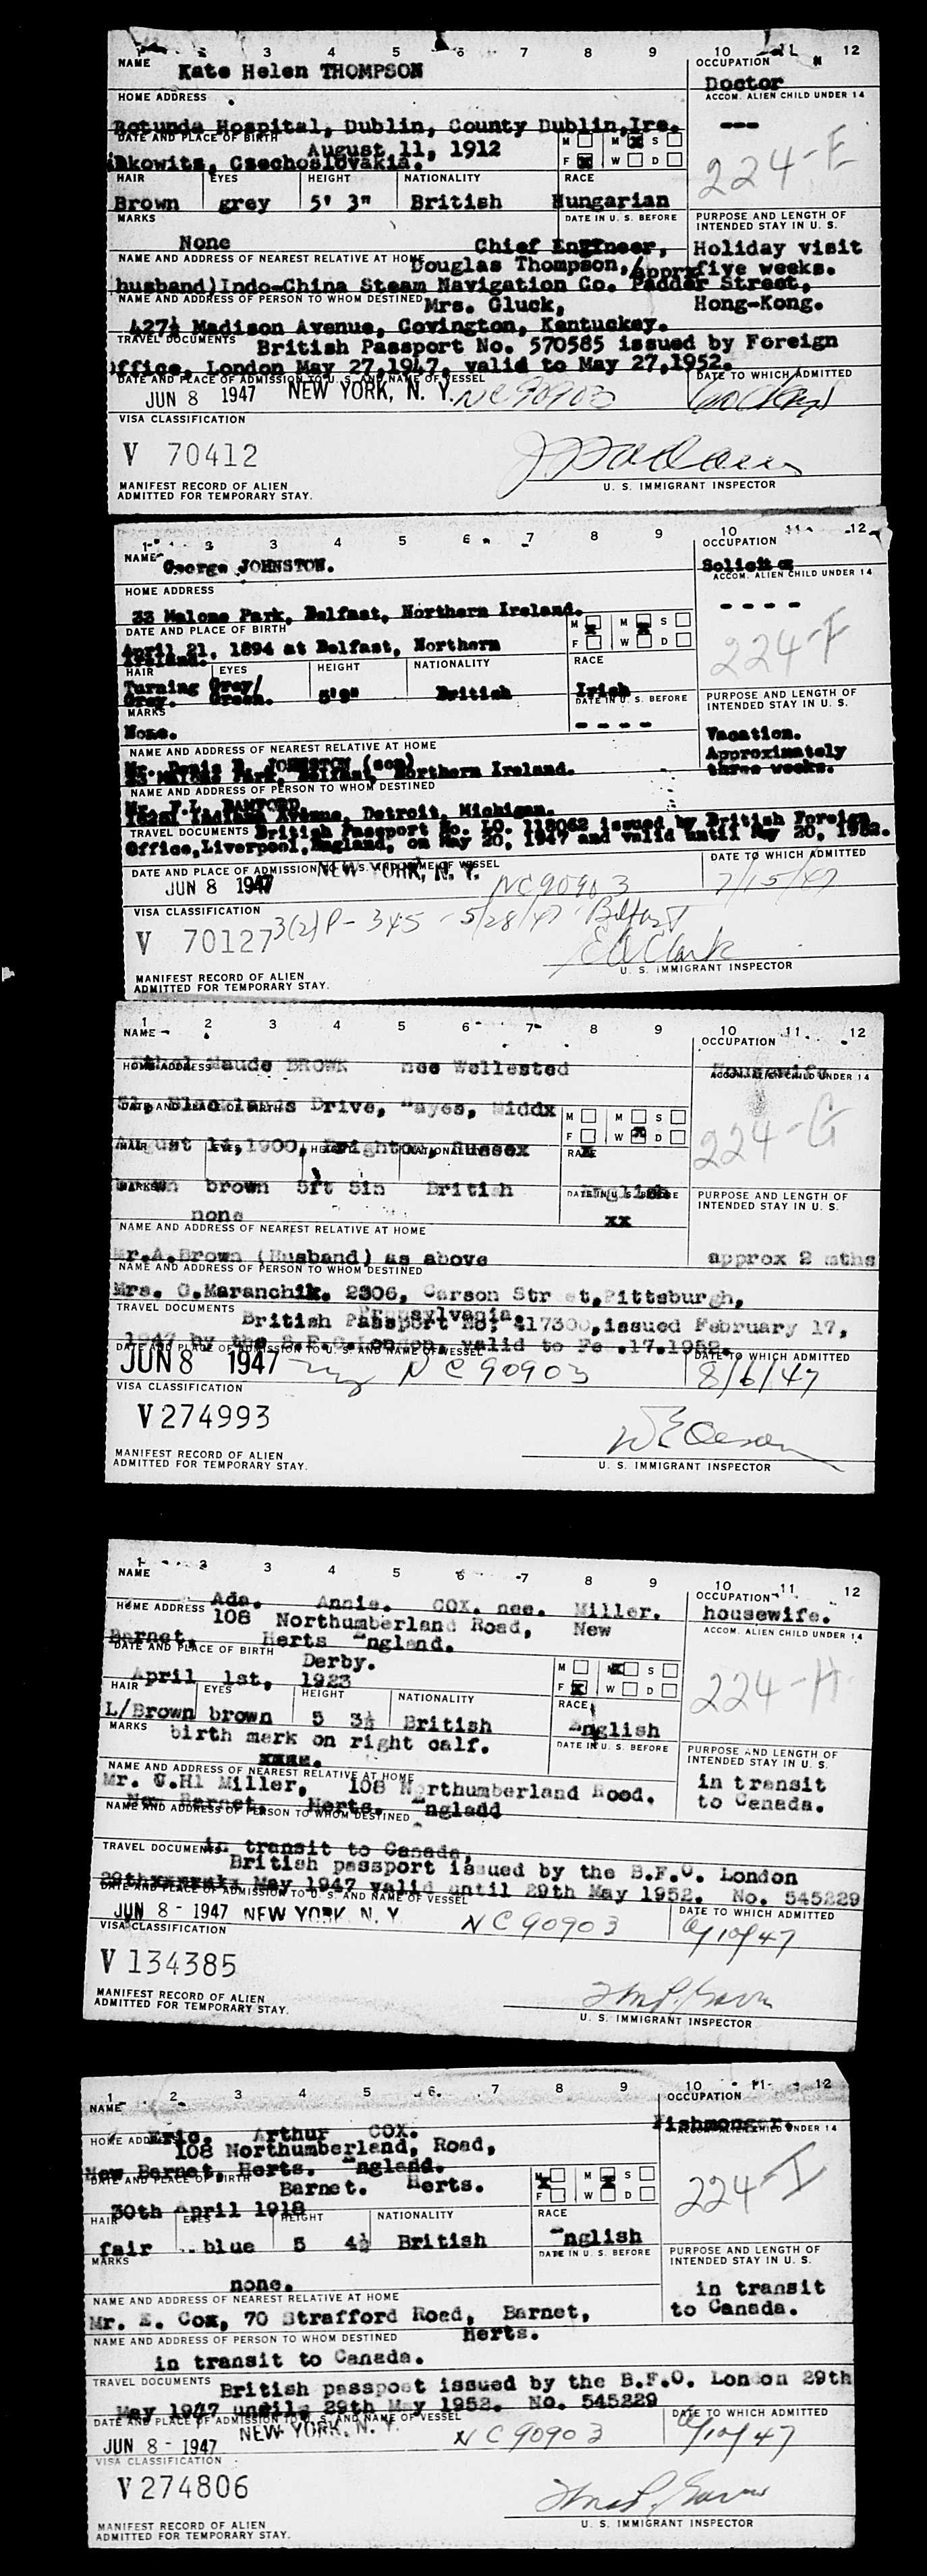 1 2 3 4 5 6 7 8 9 10 11 12
NAME Kate Helen THOMPSON
OCCUPATION Doctor
HOME ADDRESS
ACCOM. ALIEN CHILD UNDER 14
---
Rotunda Hospital, Dublin, County Dublin, Ire.
DATE AND PLACE OF BIRTH August 11, 1912
Czechoslovakia.
M M X S
F X W D
224-E
HAIR EYES HEIGHT NATIONALITY RACE
Brown grey 5' 3" British Hungarian
MARKS
DATE IN U. S. BEFORE
PURPOSE AND LENGTH OF INTENDED STAY IN U. S.
None
Chief Engineer,
Holiday visit
NAME AND ADDRESS OF NEAREST RELATIVE AT HOME Douglas Thompson,/
apprx five weeks.
husband)Indo-China Steam Navigation Co. Pedder Street,
Hong-Kong.
NAME AND ADDRESS OF PERSON TO WHOM DESTINED Mrs. Gluck,
427½ Madison Avenue, Covington, Kentuckey.
TRAVEL DOCUMENTS British Passport No. 570585 issued by Foreign
Office, London May 27,1947, valid to May 27,1952.
DATE AND PLACE OF ADMISSION TO U. S. AND NAME OF VESSEL
DATE TO WHICH ADMITTED
JUN 8 1947 NEW YORK, N. Y. NC 90903
VISA CLASSIFICATION
V 70412
MANIFEST RECORD OF ALIEN
ADMITTED FOR TEMPORARY STAY.
U. S. IMMIGRANT INSPECTOR
1 2 3 4 5 6 7 8 9 10 11 12
NAME George JOHNSTON.
OCCUPATION
ACCOM. ALIEN CHILD UNDER 14
HOME ADDRESS
33 Malone Park, Belfast, Northern Ireland.
- - - -
DATE AND PLACE OF BIRTH
April 21, 1894 at Belfast, Northern
Ireland.
M X M X S
F W D
224-F
HAIR EYES HEIGHT NATIONALITY RACE
Turning Grey/
Grey. Green. 5'9" British Irish
MARKS
DATE IN U. S. BEFORE
PURPOSE AND LENGTH OF INTENDED STAY IN U. S.
None.
- - - -
Vacation.
Approximately
three weeks.
NAME AND ADDRESS OF NEAREST RELATIVE AT HOME
Mr. Denis B. JOHNSTON (son)
33 Malone Park, Belfast, Northern Ireland.
NAME AND ADDRESS OF PERSON TO WHOM DESTINED
Mr. F.L. BAMFORD
Indiana Avenue, Detroit, Michigan.
TRAVEL DOCUMENTS British Passport No. LO. 118062 issued by British Foreign
Office,Liverpool,England, on May 20, 1947 and valid until May 20, 1952.
DATE AND PLACE OF ADMISSION TO U. S. AND NAME OF VESSEL
DATE TO WHICH ADMITTED
JUN 8 1947 NEW YORK, N. Y. NC90903 7/15/47
VISA CLASSIFICATION
V 70127 3(2)P-345 - 5/28/47 Belfast
E A Clark
U. S. IMMIGRANT INSPECTOR
MANIFEST RECORD OF ALIEN
ADMITTED FOR TEMPORARY STAY.
1 2 3 4 5 6 7 8 9 10 11 12
NAME
OCCUPATION
Ethel Maude BROWN nee Wellested
Housewife
HOME ADDRESS
ACCOM. ALIEN CHILD UNDER 14
Drive, Hayes, Middx
DATE AND PLACE OF BIRTH
M M S
F X W X D
224-G
August 14,1900, Brighton, Sussex
HAIR EYES HEIGHT NATIONALITY RACE
brown brown 5ft 5in British English
MARKS
DATE IN U. S. BEFORE
PURPOSE AND LENGTH OF INTENDED STAY IN U. S.
none
xx
NAME AND ADDRESS OF NEAREST RELATIVE AT HOME
Mr.A.Brown (Husband) as above
approx 2 mths
NAME AND ADDRESS OF PERSON TO WHOM DESTINED
Mrs. G.Maranchik. 2306, Carson Str et,Pittsburgh,
Pennsylvania.
TRAVEL DOCUMENTS British Passport No; 417300,issued February 17,
1947 by the B.F.O.London valid to Fe .17.1952.
DATE AND PLACE OF ADMISSION TO U. S. AND NAME OF VESSEL
DATE TO WHICH ADMITTED
JUN 8 1947 NY NC 90903 8/6/47
VISA CLASSIFICATION
V 274993
MANIFEST RECORD OF ALIEN
ADMITTED FOR TEMPORARY STAY.
U. S. IMMIGRANT INSPECTOR
1 2 3 4 5 6 7 8 9 10 11 12
NAME
OCCUPATION
Ada. Annie. COX. nee. Miller.
housewife.
HOME ADDRESS 108 Northumberland Road, New
ACCOM. ALIEN CHILD UNDER 14
Barnet, Herts England.
DATE AND PLACE OF BIRTH Derby.
April 1st, 1923
M M X S
F X W D
224-H
HAIR EYES HEIGHT NATIONALITY RACE
L/Brown brown 5 3½ British English
MARKS birth mark on right calf.
DATE IN U. S. BEFORE
PURPOSE AND LENGTH OF INTENDED STAY IN U. S.
xxxx.
NAME AND ADDRESS OF NEAREST RELATIVE AT HOME
in transit
to Canada.
Mr. G.Hl Miller, 108 Northumberland Rood.
New Barnet. Herts. Engladd
NAME AND ADDRESS OF PERSON TO WHOM DESTINED
in transit to Canada,
TRAVEL DOCUMENTS British passport issued by the B.F.O. London
29th May 1947 valid until 29th May 1952. No. 545229
DATE AND PLACE OF ADMISSION TO U. S. AND NAME OF VESSEL
DATE TO WHICH ADMITTED
JUN 8 - 1947 NEW YORK N. Y. NC 90903 6/10/47
VISA CLASSIFICATION
V 134385
MANIFEST RECORD OF ALIEN
ADMITTED FOR TEMPORARY STAY.
U. S. IMMIGRANT INSPECTOR
1 2 3 4 5 6 7 8 9 10 11 12
NAME
OCCUPATION
Eric. Arthur COX.
Fishmonger.
HOME ADDRESS 108 Northumberland, Road,
ACCOM. ALIEN CHILD UNDER 14
New Barnet, Herts. England.
DATE AND PLACE OF BIRTH Barnet. Herts.
30th April 1918
M X M X S
F W D
224-I
HAIR EYES HEIGHT NATIONALITY RACE
fair blue 5 4½ British English
MARKS
DATE IN U. S. BEFORE
PURPOSE AND LENGTH OF INTENDED STAY IN U. S.
none.
in transit
to Canada.
NAME AND ADDRESS OF NEAREST RELATIVE AT HOME
Mr. E. Cox, 70 Strafford Road, Barnet,
Herts.
NAME AND ADDRESS OF PERSON TO WHOM DESTINED
in transit to Canada.
TRAVEL DOCUMENTS British passpost issued by the B.F.O. London 29th
May 1947 until 29th May 1952. No. 545229
DATE AND PLACE OF ADMISSION TO U. S. AND NAME OF VESSEL
DATE TO WHICH ADMITTED
JUN 8 - 1947 NEW YORK, N. Y. NC 90903 6/10/47
VISA CLASSIFICATION
V 274806
MANIFEST RECORD OF ALIEN
ADMITTED FOR TEMPORARY STAY.
U. S. IMMIGRANT INSPECTOR